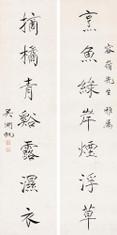 烹魚綠岸煙浮草
容嶺先生雅屬
摘橘青谿露濕衣
吳湖帆